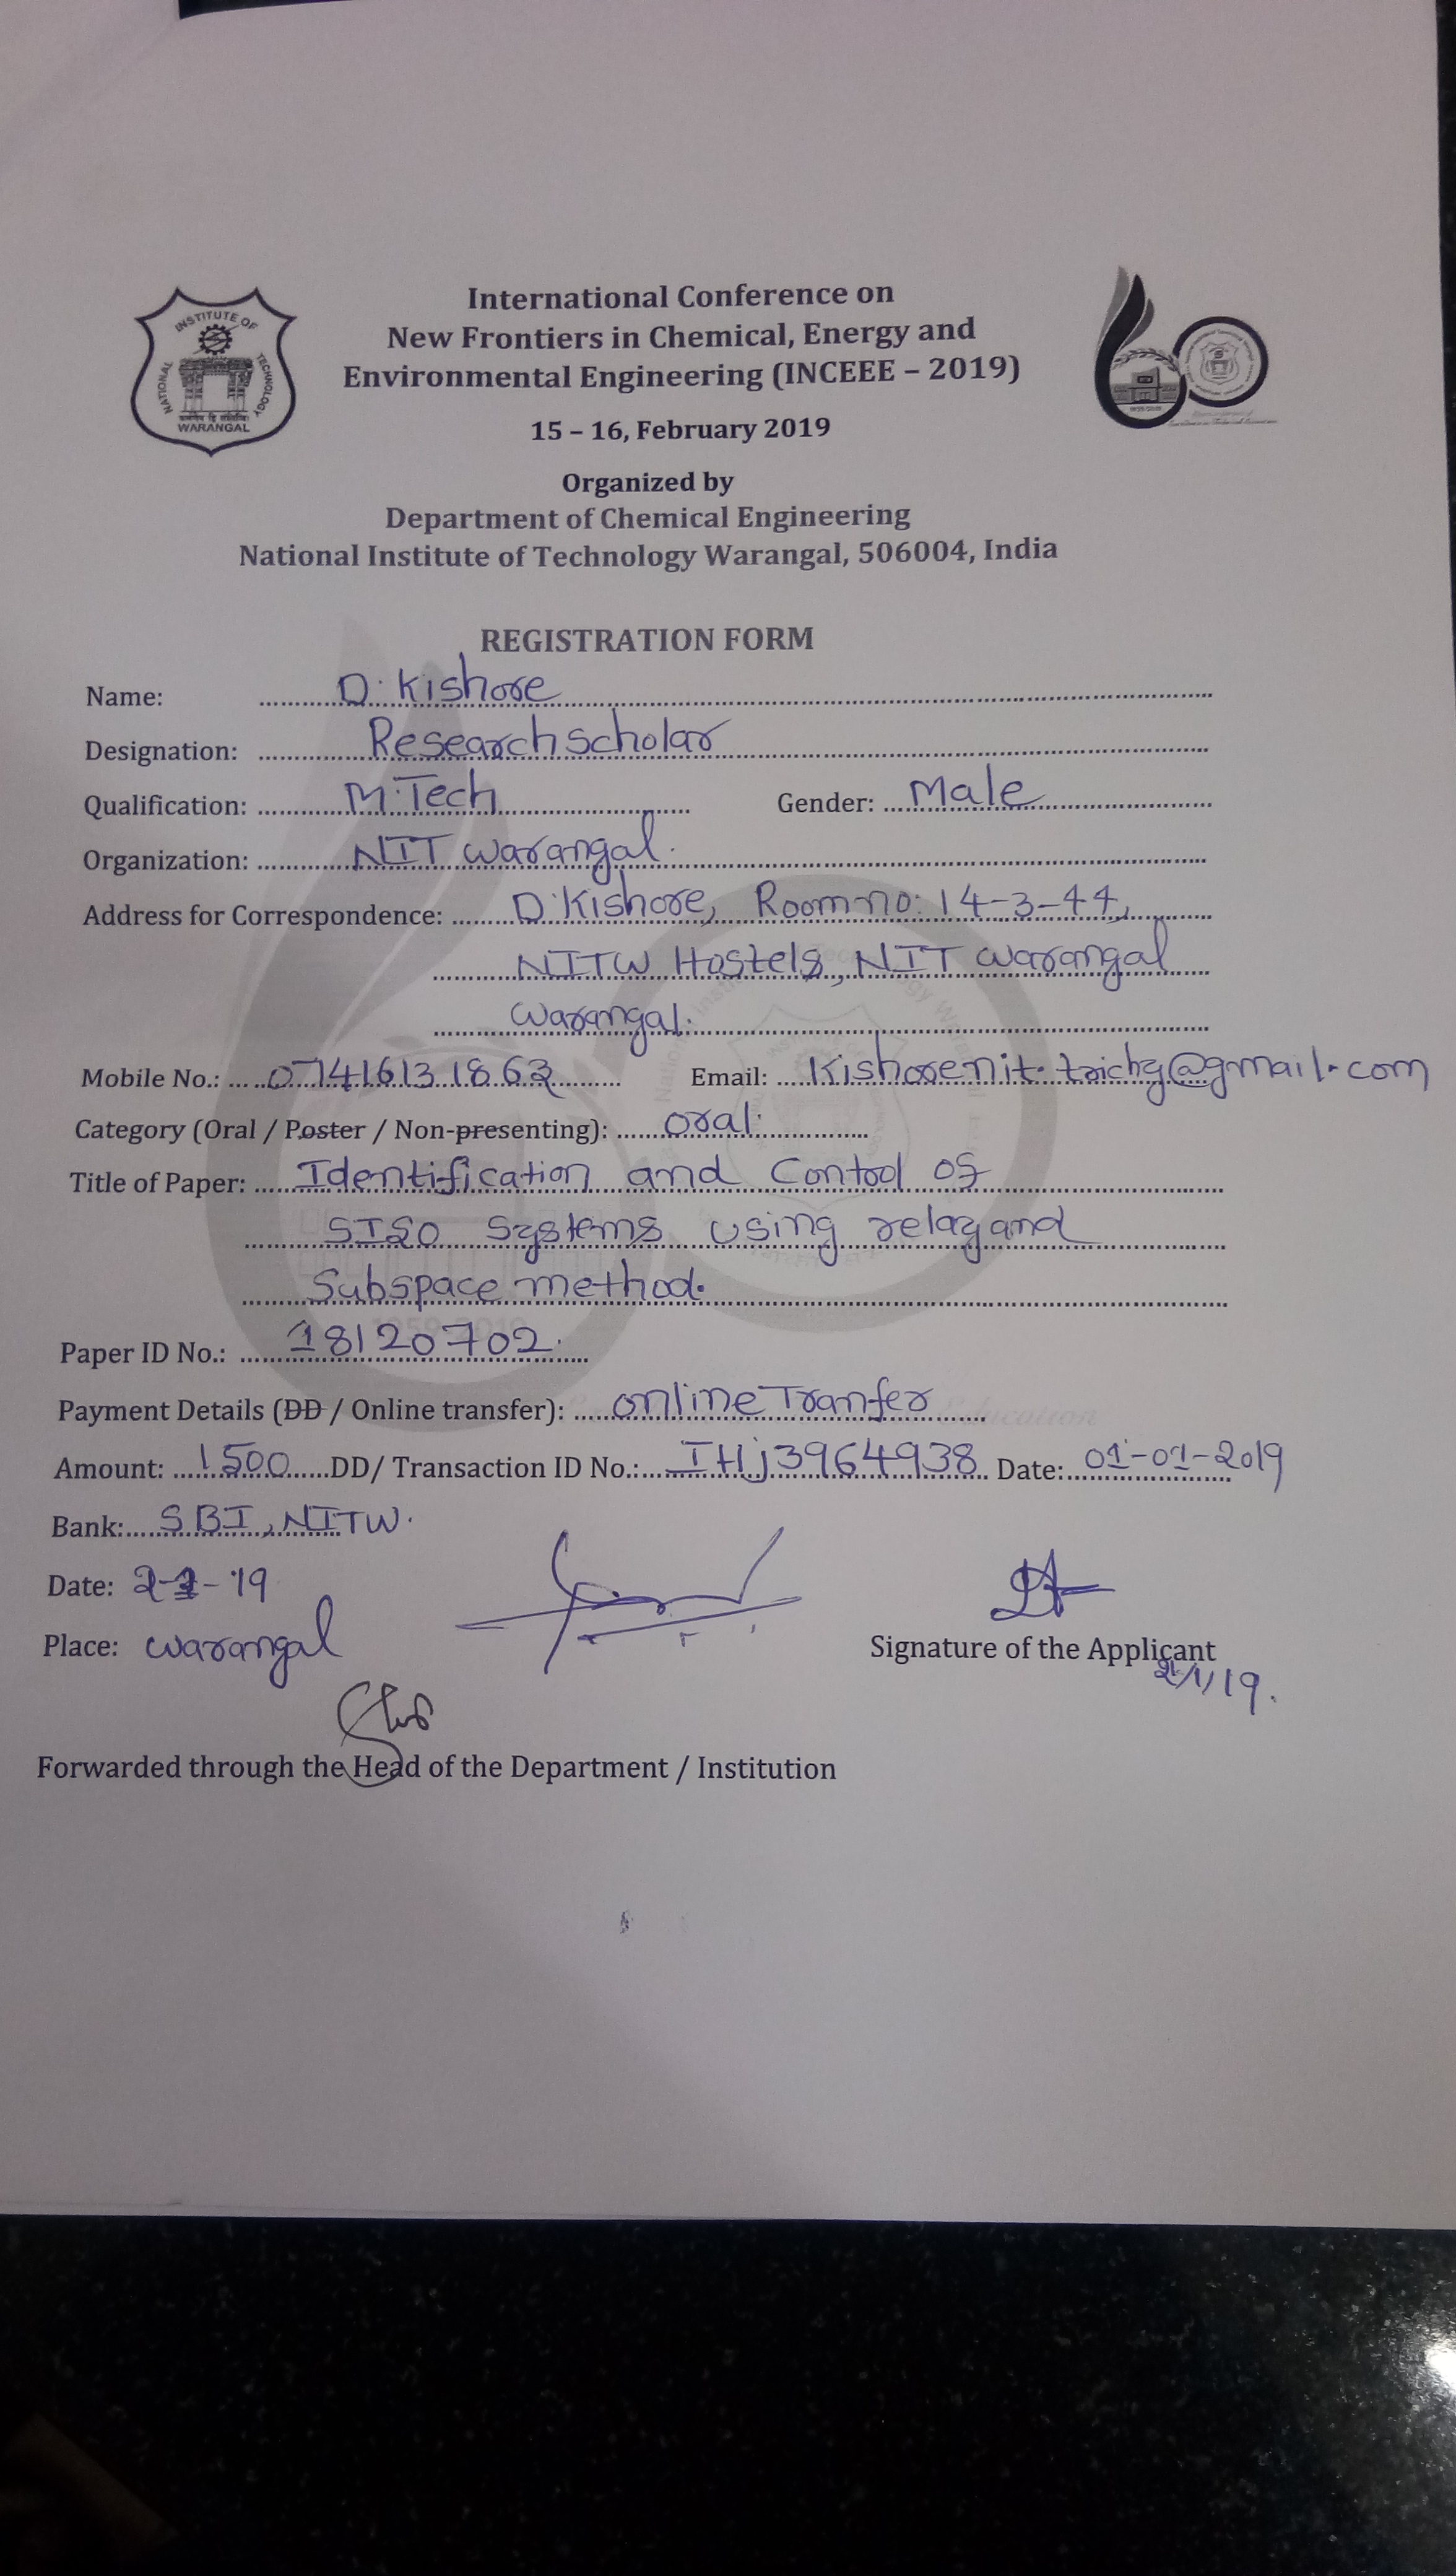 INSTITUTE OF
NATIONAL
TECHNOLOGY
WARANGAL
International Conference on
New Frontiers in Chemical, Energy and
Environmental Engineering (INCEEE – 2019)
15 – 16, February 2019
Organized by
Department of Chemical Engineering
National Institute of Technology Warangal, 506004, India
REGISTRATION FORM
Name: D. Kishore
Designation: Research scholar
Qualification: M.Tech Gender: Male
Organization: NIT Warangal.
Address for Correspondence: D. Kishore, Room no: 14-3-44,
NITW Hostels, NIT Warangal
Warangal.
Mobile No.: 07416131863 Email: Kishorenit.trichy@gmail.com
Category (Oral / Poster / Non-presenting): oral.
Title of Paper: Identification and Control of
SISO Systems using relay and
Subspace method.
Paper ID No.: 18120702.
Payment Details (DD / Online transfer): online Tranfer
Amount: 1500 DD/ Transaction ID No.: IHJ3964938 Date: 01-01-2019
Bank: SBI, NITW.
Date: 2-1-19
Place: Warangal
Signature of the Applicant
2/1/19.
Forwarded through the Head of the Department / Institution